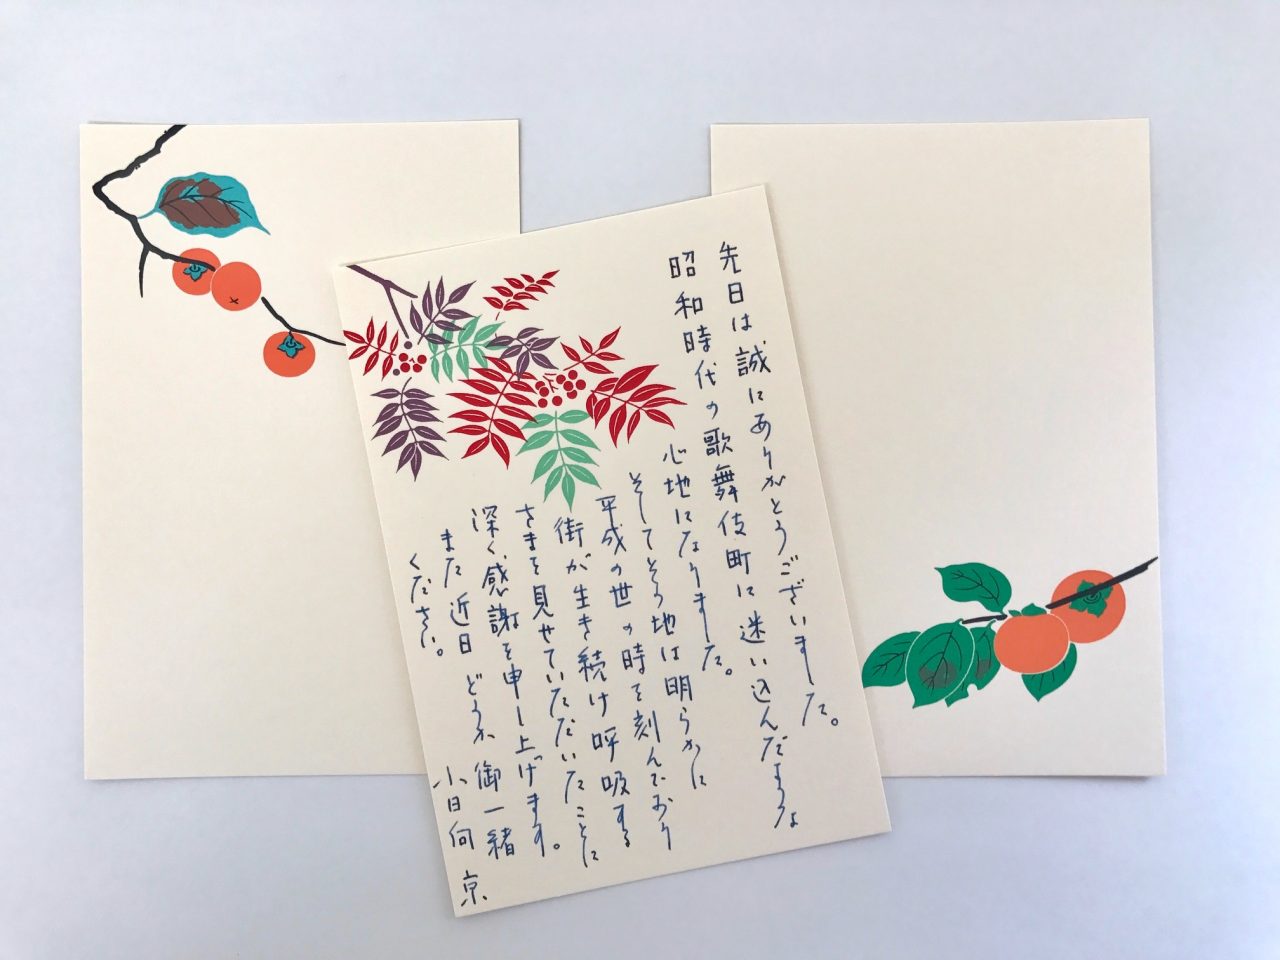 先日は誠にありがとうございました。
昭和時代の歌舞伎町に迷い込んだような
心地になりました。
そしてその地は明らかに
平成の世の時を刻んでおり
街が生き続け呼吸する
さまを見せていただいたことに
深く感謝を申し上げます。
また近日どうか御一緒
ください。
小日向 京